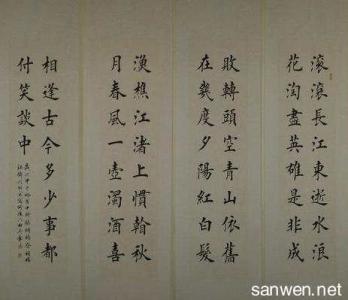 滾滾長江東逝水浪
花淘盡英雄是非成
敗轉頭空青山依舊
在幾度夕陽紅白髮
漁樵江渚上慣翰秋
月春風一壺濁酒喜
相逢古今多少事都
付笑談中
sanwen.net